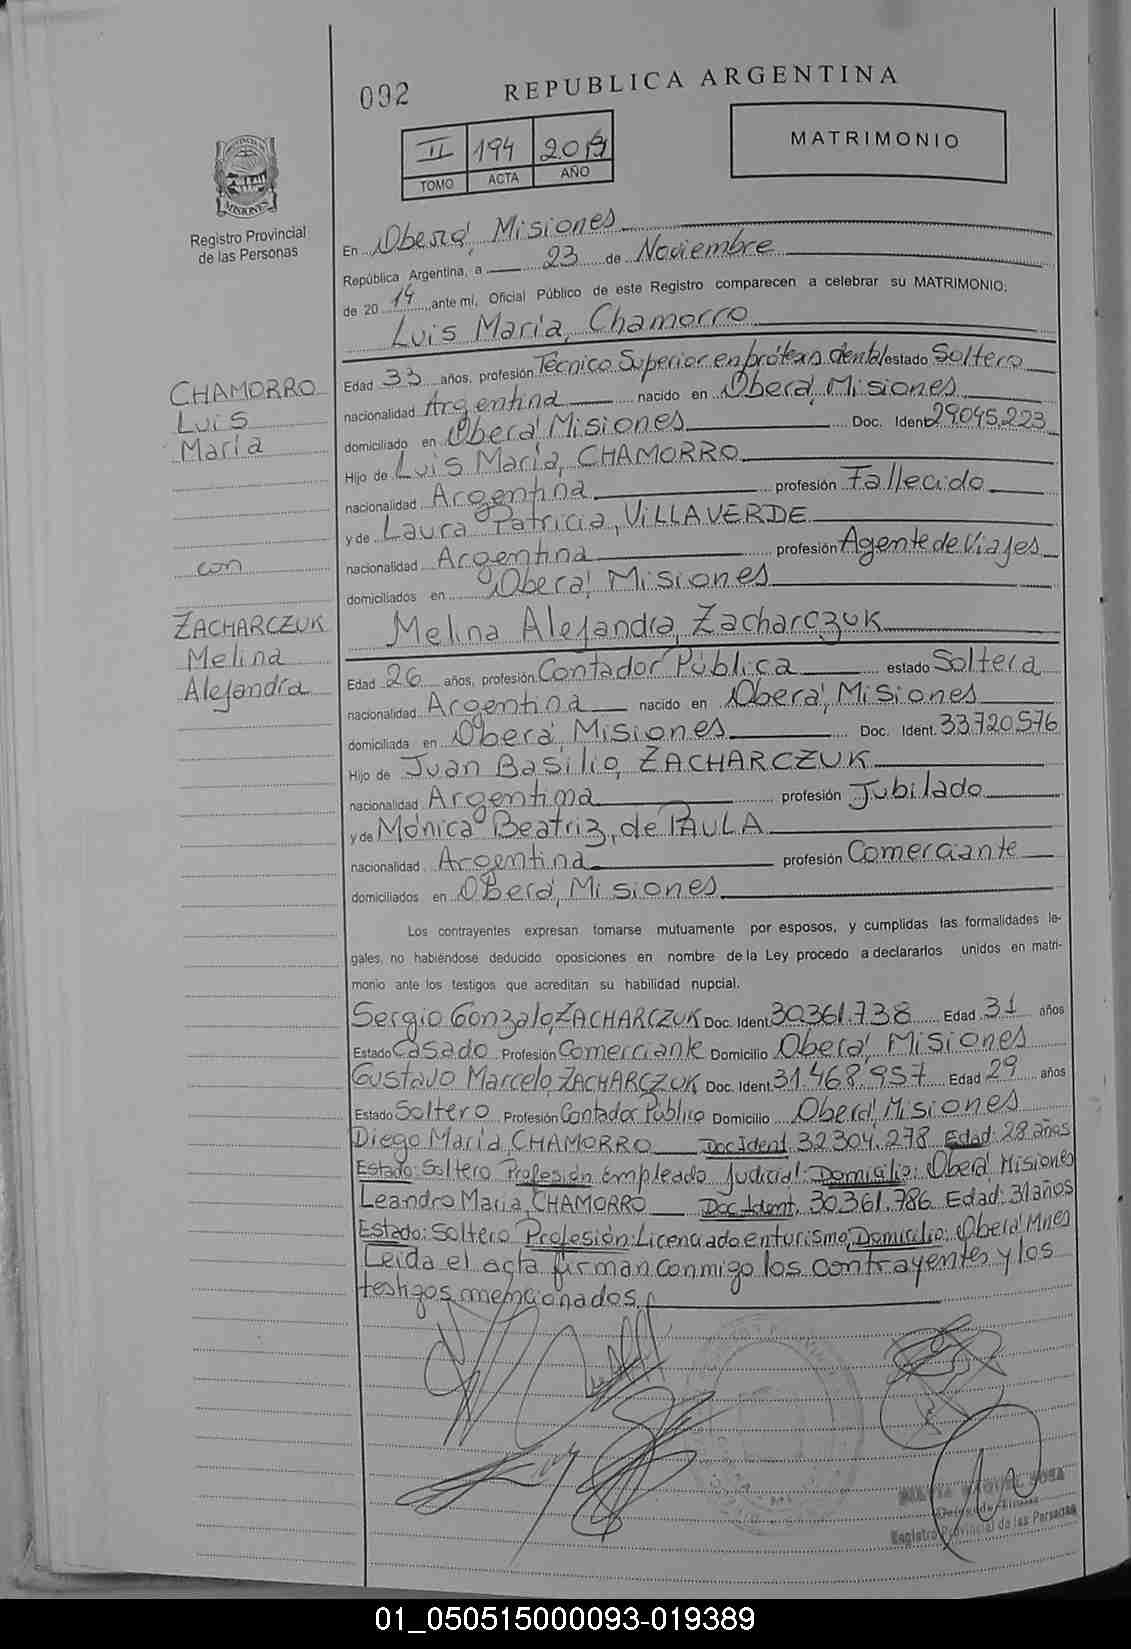 092
REPUBLICA ARGENTINA
II 194 2014
TOMO ACTA AÑO
MATRIMONIO
PROVINCIA DE MISIONES
Registro Provincial
de las Personas
En Oberá, Misiones
República Argentina, a 23 de Noviembre
de 20 14, ante mí, Oficial Público de este Registro comparecen a celebrar su MATRIMONIO:
Luis María, Chamorro
CHAMORRO
Luis
María
con
ZACHARCZUK
Melina
Alejandra
Edad 33 años, profesión Técnico Superior en prótesis dental estado Soltero
nacionalidad Argentina nacido en Oberá, Misiones
domiciliado en Oberá Misiones Doc. Ident. 29.045.223
Hijo de Luis María, CHAMORRO
nacionalidad Argentina profesión Fallecido
y de Laura Patricia, ViLLAVERDE
nacionalidad Argentina profesión Agente de Viajes
domiciliados en Oberá, Misiones
Melina Alejandra, Zacharczuk
Edad 26 años, profesión Contador Pública estado Soltera
nacionalidad Argentina nacido en Oberá, Misiones
domiciliada en Oberá, Misiones Doc. Ident. 33.720.576
Hijo de Juan Basilio, ZACHARCZUK
nacionalidad Argentina profesión Jubilado
y de Mónica Beatriz, de PAULA
nacionalidad Argentina profesión Comerciante
domiciliados en Oberá, Misiones
Los contrayentes expresan tomarse mutuamente por esposos, y cumplidas las formalidades le-
gales, no habiéndose deducido oposiciones en nombre de la Ley procedo a declararlos unidos en matri-
monio ante los testigos que acreditan su habilidad nupcial.
Sergio Gonzalo, ZACHARCZUK Doc. Ident. 30.361.738 Edad 31 años
Estado Casado Profesión Comerciante Domicilio Oberá, Misiones
Gustavo Marcelo, ZACHARCZUK Doc. Ident. 31.468.957 Edad 29 años
Estado Soltero Profesión Contador Público Domicilio Oberá, Misiones
Diego María, CHAMORRO Doc Ident. 32.304.278 Edad: 28 años
Estado: Soltero Profesión Empleado Judicial: Domicilio: Oberá Misiones
Leandro María, CHAMORRO Doc Ident. 30.361.786 Edad: 31 años
Estado: Soltero Profesión: Licenciado en turismo, Domicilio: Oberá Mnes
Leída el acta firman conmigo los contrayentes y los
testigos mencionados.
Registro Provincial de las Personas
01_050515000093-019389